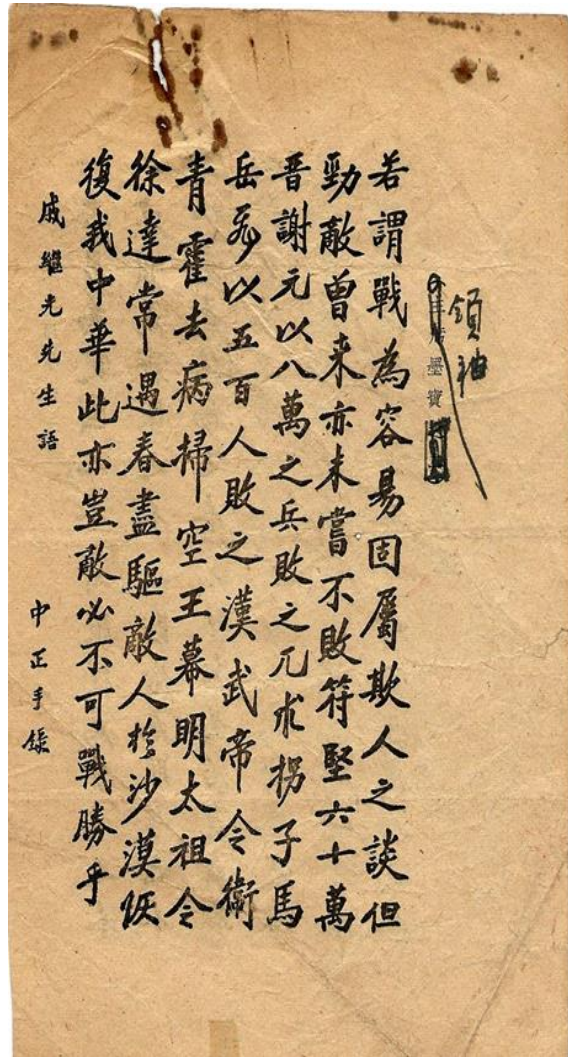 領袖
墨寶
若謂戰為容易固屬欺人之談但
勁敵曾来亦未嘗不敗符堅六十萬
晋謝元以八萬之兵敗之兀朮拐子馬
岳飛以五百人敗之漢武帝令衛
青霍去病掃空王幕明太祖令
徐達常遇春盡驅敵人於沙漠恢
復我中華此亦豈敵必不可戰勝乎
戚繼光先生語
中正手錄